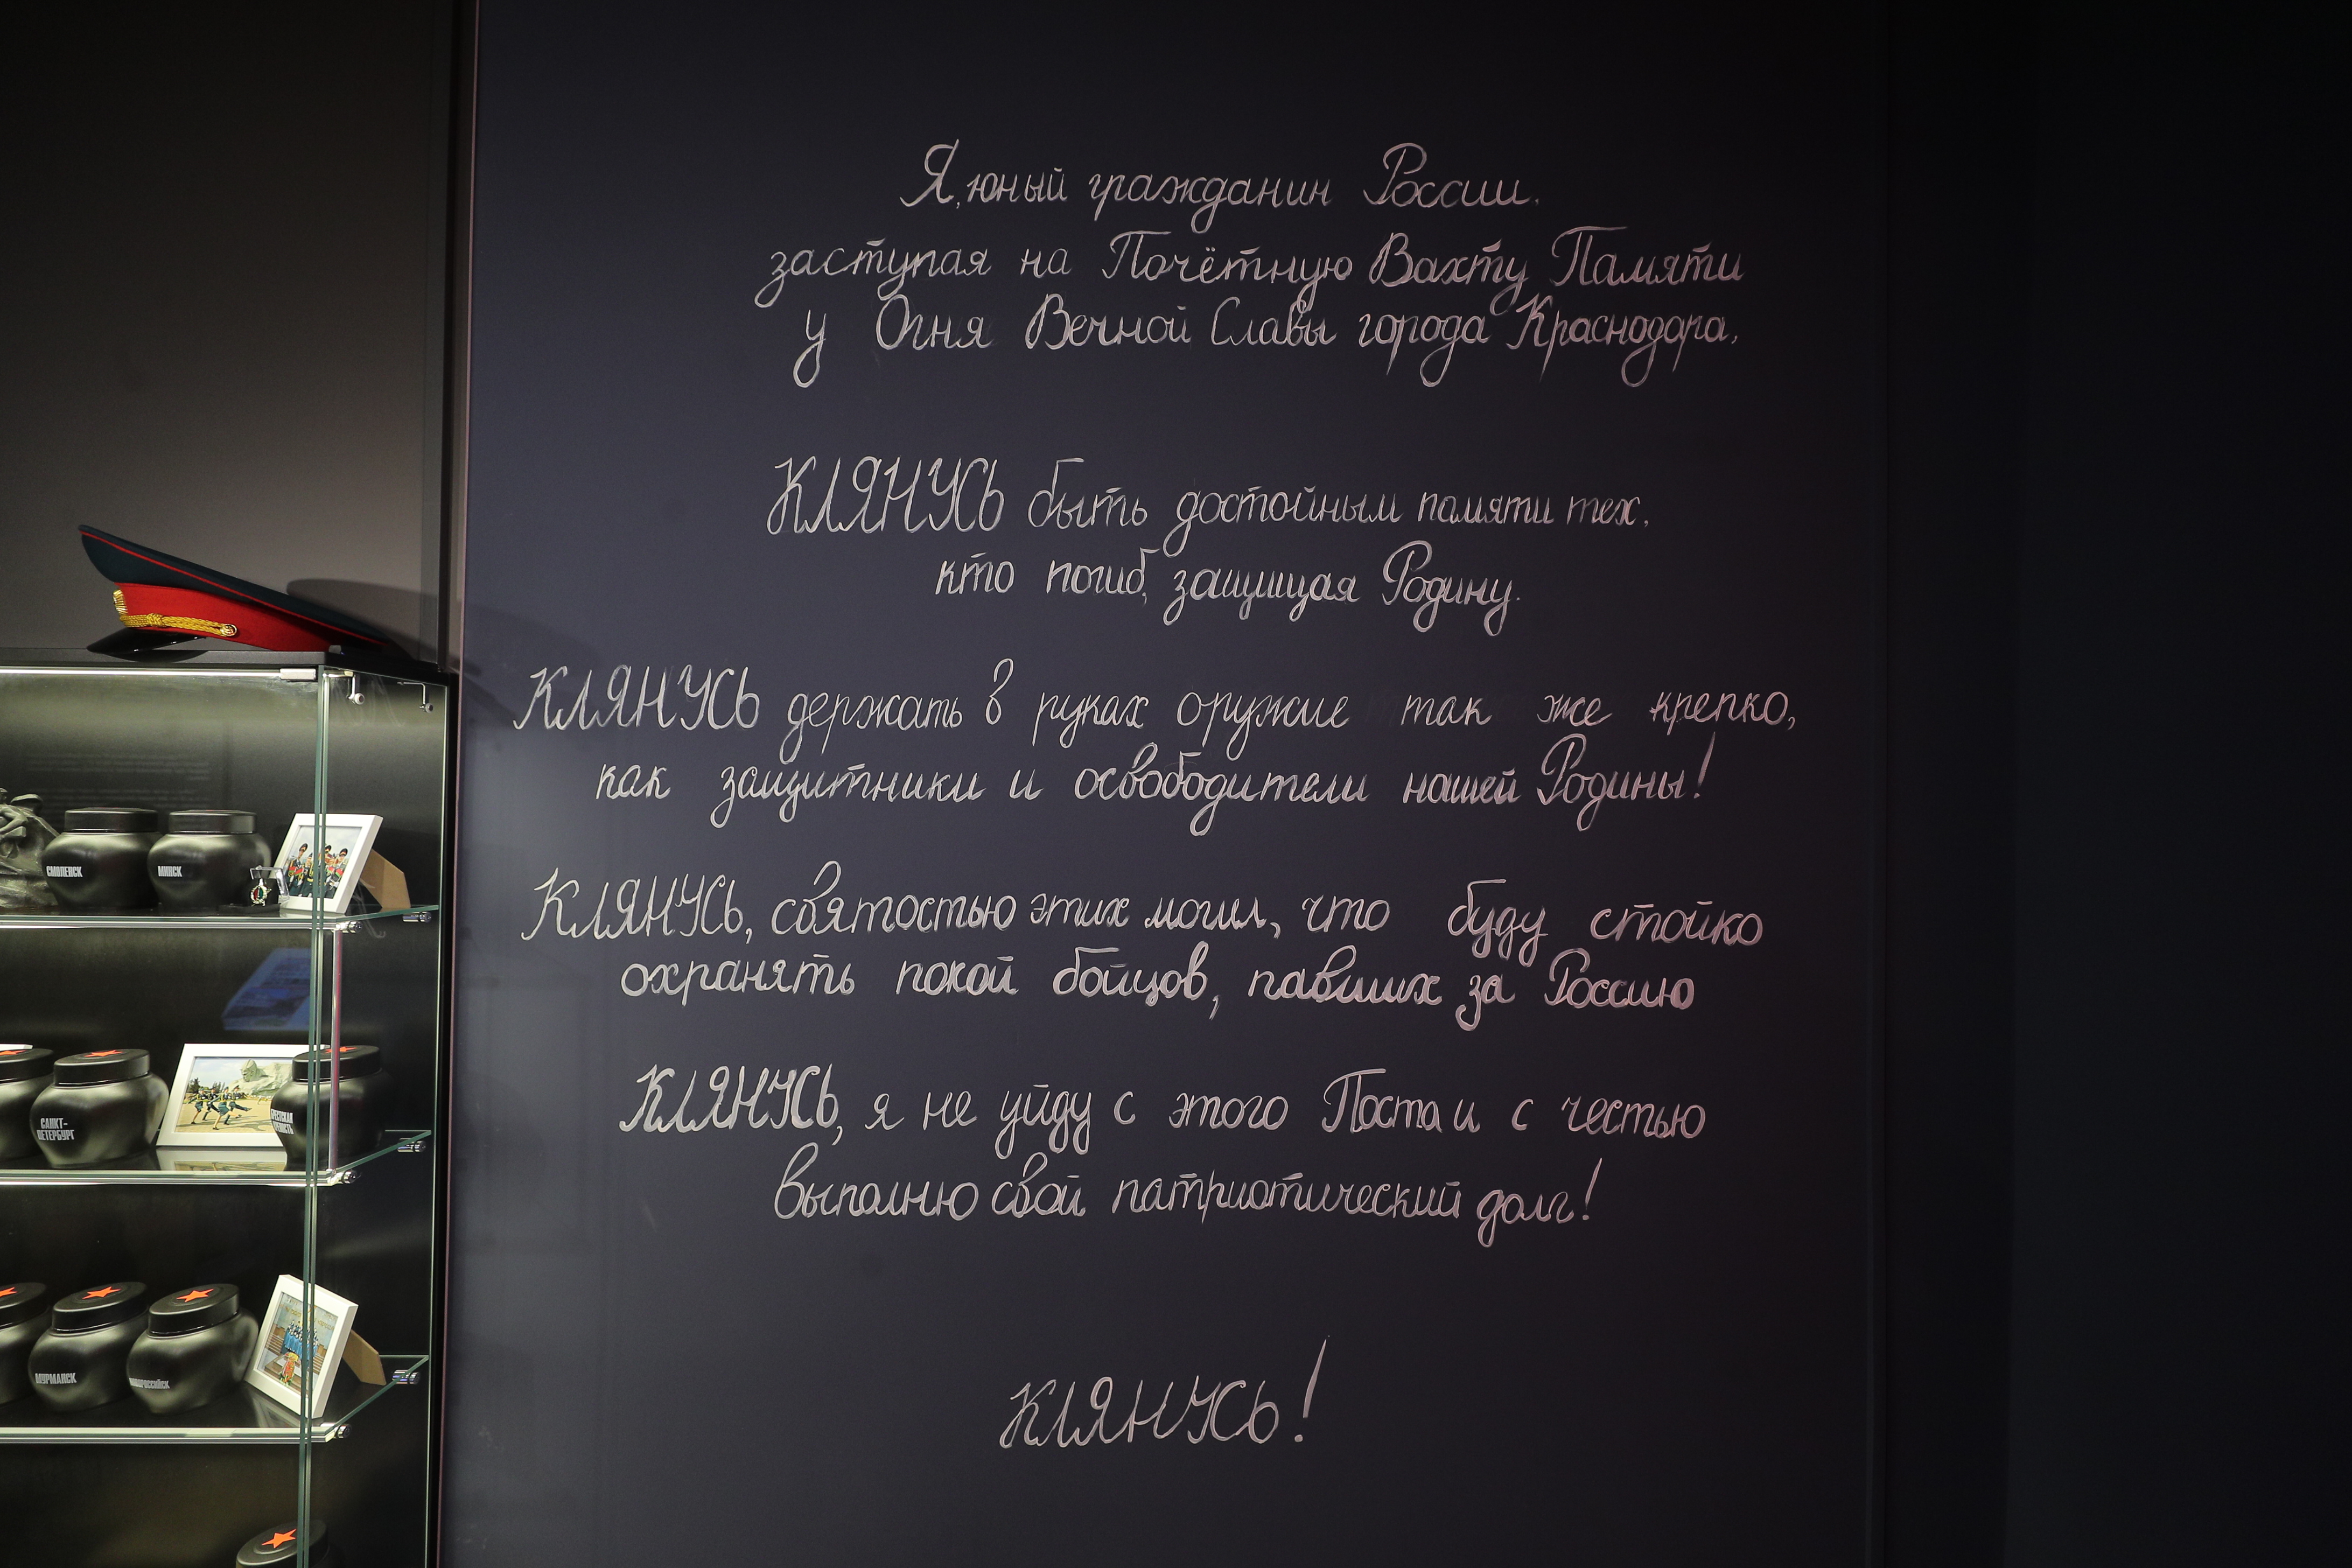 Я, юный гражданин России,
заступая на Почётную Вахту Памяти
у Огня Вечной Славы города Краснодара,
КЛЯНУСЬ быть достойным памяти тех,
кто погиб, защищая Родину.
КЛЯНУСЬ держать в руках оружие так же крепко,
как защитники и освободители нашей Родины!
КЛЯНУСЬ, святостью этих могил, что буду стойко
охранять покой бойцов, павших за Россию
КЛЯНУСЬ, я не уйду с этого Поста и с честью
выполню свой патриотический долг!
КЛЯНУСЬ!
СМОЛЕНСК
МИНСК
САНКТ-
ПЕТЕРБУРГ
МУРМАНСК